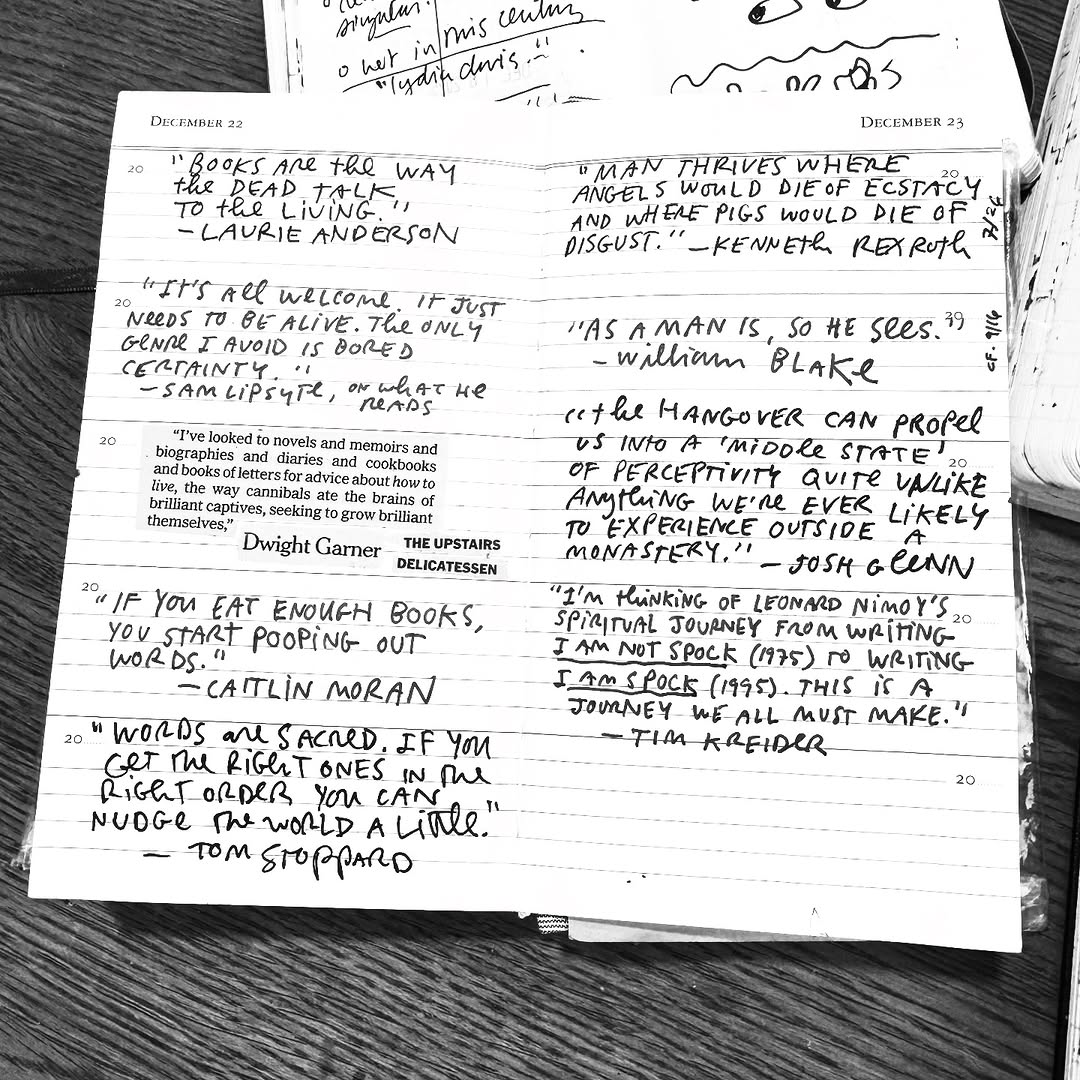 singular.
o not in this century
"lydia davis."
DECEMBER 22
20
"BOOKS ARE the WAY
the DEAD TALK
TO the LIVING."
—LAURIE ANDERSON
20
"IT'S All WELCOME. IT JUST
NEEDS TO BE ALIVE. The ONLY
GENRE I AVOID IS BORED
CERTAINTY."
—SAM LIPSYTE, ON WHAT HE
READS
20
"I've looked to novels and memoirs and
biographies and diaries and cookbooks
and books of letters for advice about how to
live, the way cannibals ate the brains of
brilliant captives, seeking to grow brilliant
themselves,"
Dwight Garner THE UPSTAIRS
DELICATESSEN
20
"IF YOU EAT ENOUGH BOOKS,
YOU START POOPING OUT
WORDS."
—CAITLIN MORAN
20
"WORDS are SACRED. IF YOU
GET the RIGhT ONES IN the
RIGhT ORDER YOU CAN
NUDGE the WORLD A LITTLE."
— TOM STOPPARD
DECEMBER 23
20
"MAN THRIVES WHERE
ANGELS WOULD DIE OF ECSTACY
AND WHERE PIGS WOULD DIE OF
DISGUST." —KENNETH REXROTH
"AS A MAN IS, SO HE SEES."
—William BLAKE
CF. 9/16
"the HANGOVER CAN PROPEL
US INTO A 'MIDDLE STATE'
20
OF PERCEPTIVITY QUITE UNLIKE
ANYTHING WE'RE EVER LIKELY
TO EXPERIENCE OUTSIDE A
MONASTERY." —JOSH GLENN
"I'M thINKING OF LEONARD NIMOY'S
20
SPIRITUAL JOURNEY FROM WRITING
I AM NOT SPOCK (1975) TO WRITING
I AM SPOCK (1995). THIS IS A
JOURNEY WE ALL MUST MAKE."
—TIM KREIDER
20